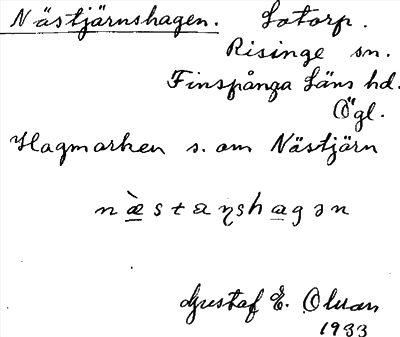 Nästjärnshagen. Lotorp.
Risinge sn.
Finspånga läns hd.
Ögl.
Hagmarken s. om Nästjärn
næ̀staɳshagən
Gustaf E. Olman
1933